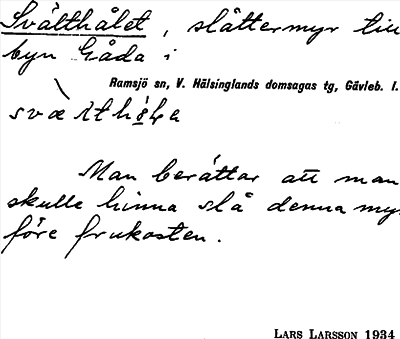 Svälthålet, slåttermyr till
byn Gåda i
Ramsjö sn, V. Hälsinglands domsagas tg, Gävleb. l.
Man berättar att man
skulle hinna slå denna myr
före frukosten.
LARS LARSSON 1934